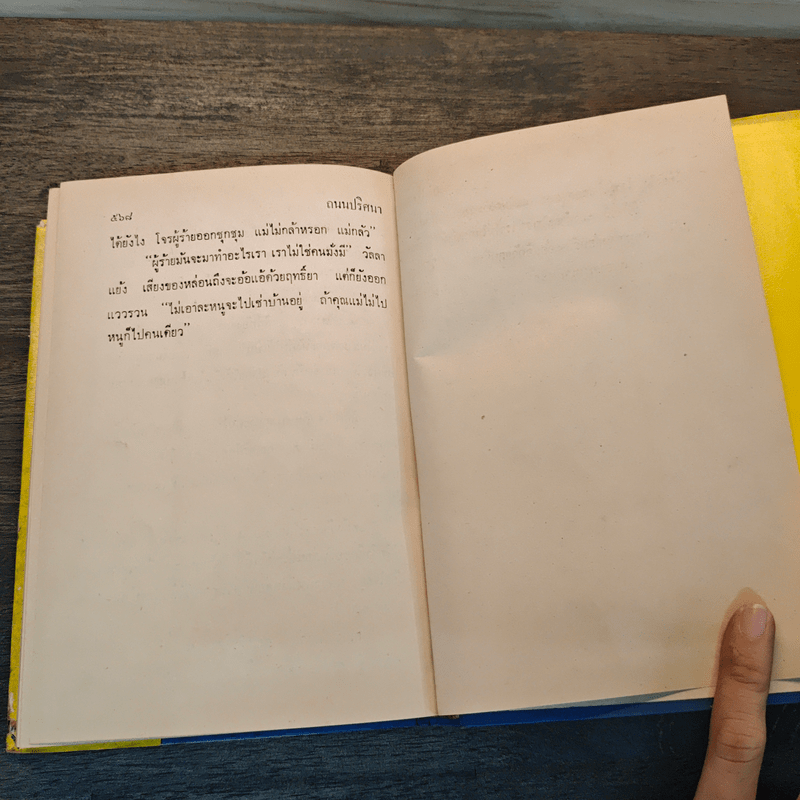 ๕๖๘ ถนนปริศนา
ได้ยังไง โจรผู้ร้ายออกชุกชุม แม่ไม่กล้าหรอก แม่กลัว”
“ผู้ร้ายมันจะมาทำอะไรเรา เราไม่ใช่คนมั่งมี” วัลลา
แย้ง เสียงของหล่อนถึงจะอ้อแอ้ด้วยฤทธิ์ยา แต่ก็ยังออก
แววรวน “ไม่เอาละหนูจะไปเช่าบ้านอยู่ ถ้าคุณแม่ไม่ไป
หนูก็ไปคนเดียว”